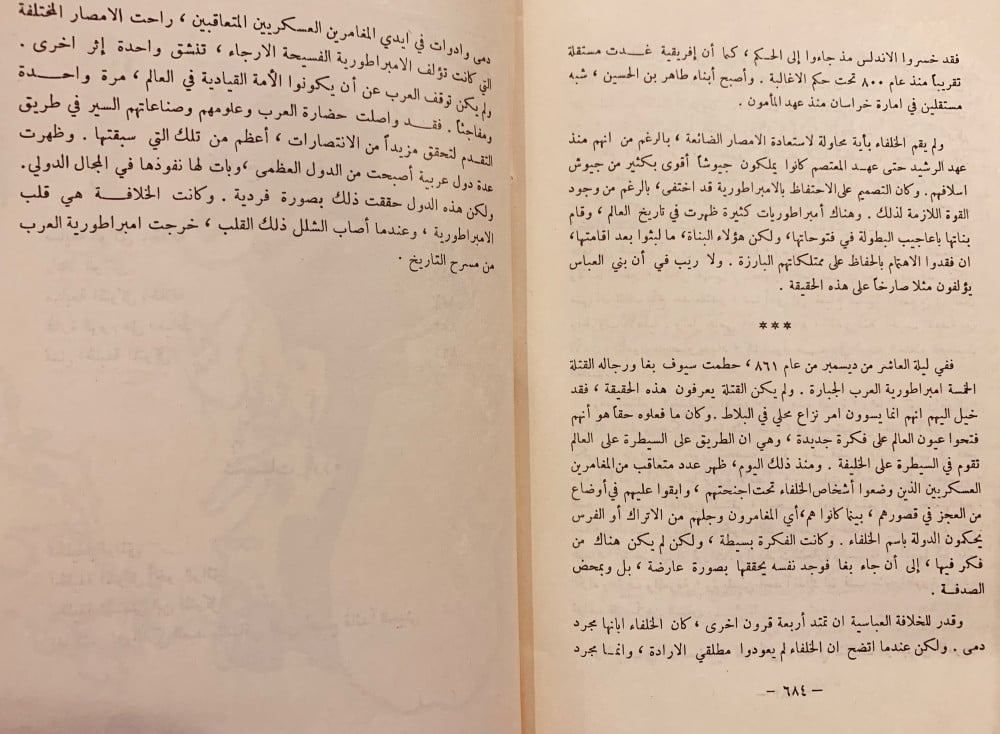 فقد خسروا الاندلس مذ جاءوا إلى الحكم ، كما أن إفريقية غدت مستقلة
تقريباً منذ عام ٨٠٠ تحت حكم الاغالبة . وأصبح أبناء طاهر بن الحسين ، شبه
مستقلين في امارة خراسان منذ عهد المأمون .
ولم يقم الخلفاء بأية محاولة لاستعادة الامصار الضائعة ، بالرغم من انهم منذ
عهد الرشيد حتى عهد المعتصم كانوا يملكون جيوشاً أقوى بكثير من جيوش
اسلافهم . وكان التصميم على الاحتفاظ بالامبراطورية قد اختفى ، بالرغم من وجود
القوة اللازمة لذلك . وهناك أمبراطوريات كثيرة ظهرت في تاريخ العالم ، وقام
بناتها باعاجيب البطولة في فتوحاتها، ولكن هؤلاء البناة، ما لبثوا بعد اقامتها،
ان فقدوا الاهتمام بالحفاظ على ممتلكاتهم البارزة . ولا ريب في أن بني العباس
يؤلفون مثلا صارخاً على هذه الحقيقة .
***
ففي ليلة العاشر من ديسمبر من عام ٨٦١ ، حطمت سيوف بغا ورجاله القتلة
الخمسة امبراطورية العرب الجبارة . ولم يكن القتلة يعرفون هذه الحقيقة ، فقد
خيل اليهم انهم انما يسوون امر نزاع محلي في البلاط . وكان ما فعلوه حقاً هو أنهم
فتحوا عيون العالم على فكرة جديدة ، وهي ان الطريق على السيطرة على العالم
تقوم في السيطرة على الخليفة . ومنذ ذلك اليوم، ظهر عدد متعاقب من المغامرين
العسكريين الذين وضعوا أشخاص الخلفاء تحت اجنحتهم ، وابقوا عليهم في أوضاع
من العجز في قصورهم ، بينما كانوا هم، أي المغامرون وجلهم من الاتراك أو الفرس
يحكمون الدولة باسم الخلفاء . وكانت الفكرة بسيطة ، ولكن لم يكن هناك من
فكر فيها ، إلى أن جاء بغا فوجد نفسه يحققها بصورة عارضة ، بل وبمحض
الصدفة .
وقدر للخلافة العباسية ان تمتد أربعة قرون اخرى ، كان الخلفاء ابانها مجرد
دمى . ولكن عندما اتضح ان الخلفاء لم يعودوا مطلقي الارادة ، وانما مجرد
– ٦٨٤ –
دمى وادوات في ايدي المغامرين العسكريين المتعاقبين ، راحت الامصار المختلفة
التي كانت تؤلف الامبراطورية الفسيحة الارجاء ، تنشق واحدة إثر اخرى .
ولم يكن توقف العرب عن أن يكونوا الأمة القيادية في العالم ، مرة واحدة
ومفاجئاً . فقد واصلت حضارة العرب وعلومهم وصناعاتهم السير في طريق
التقدم لتحقق مزيداً من الانتصارات ، أعظم من تلك التي سبقتها . وظهرت
عدة دول عربية أصبحت من الدول العظمى ، وبات لها نفوذها في المجال الدولي.
ولكن هذه الدول حققت ذلك بصورة فردية . وكانت الخلافة هي قلب
الامبراطورية ، وعندما أصاب الشلل ذلك القلب ، خرجت امبراطورية العرب
من مسرح التاريخ .